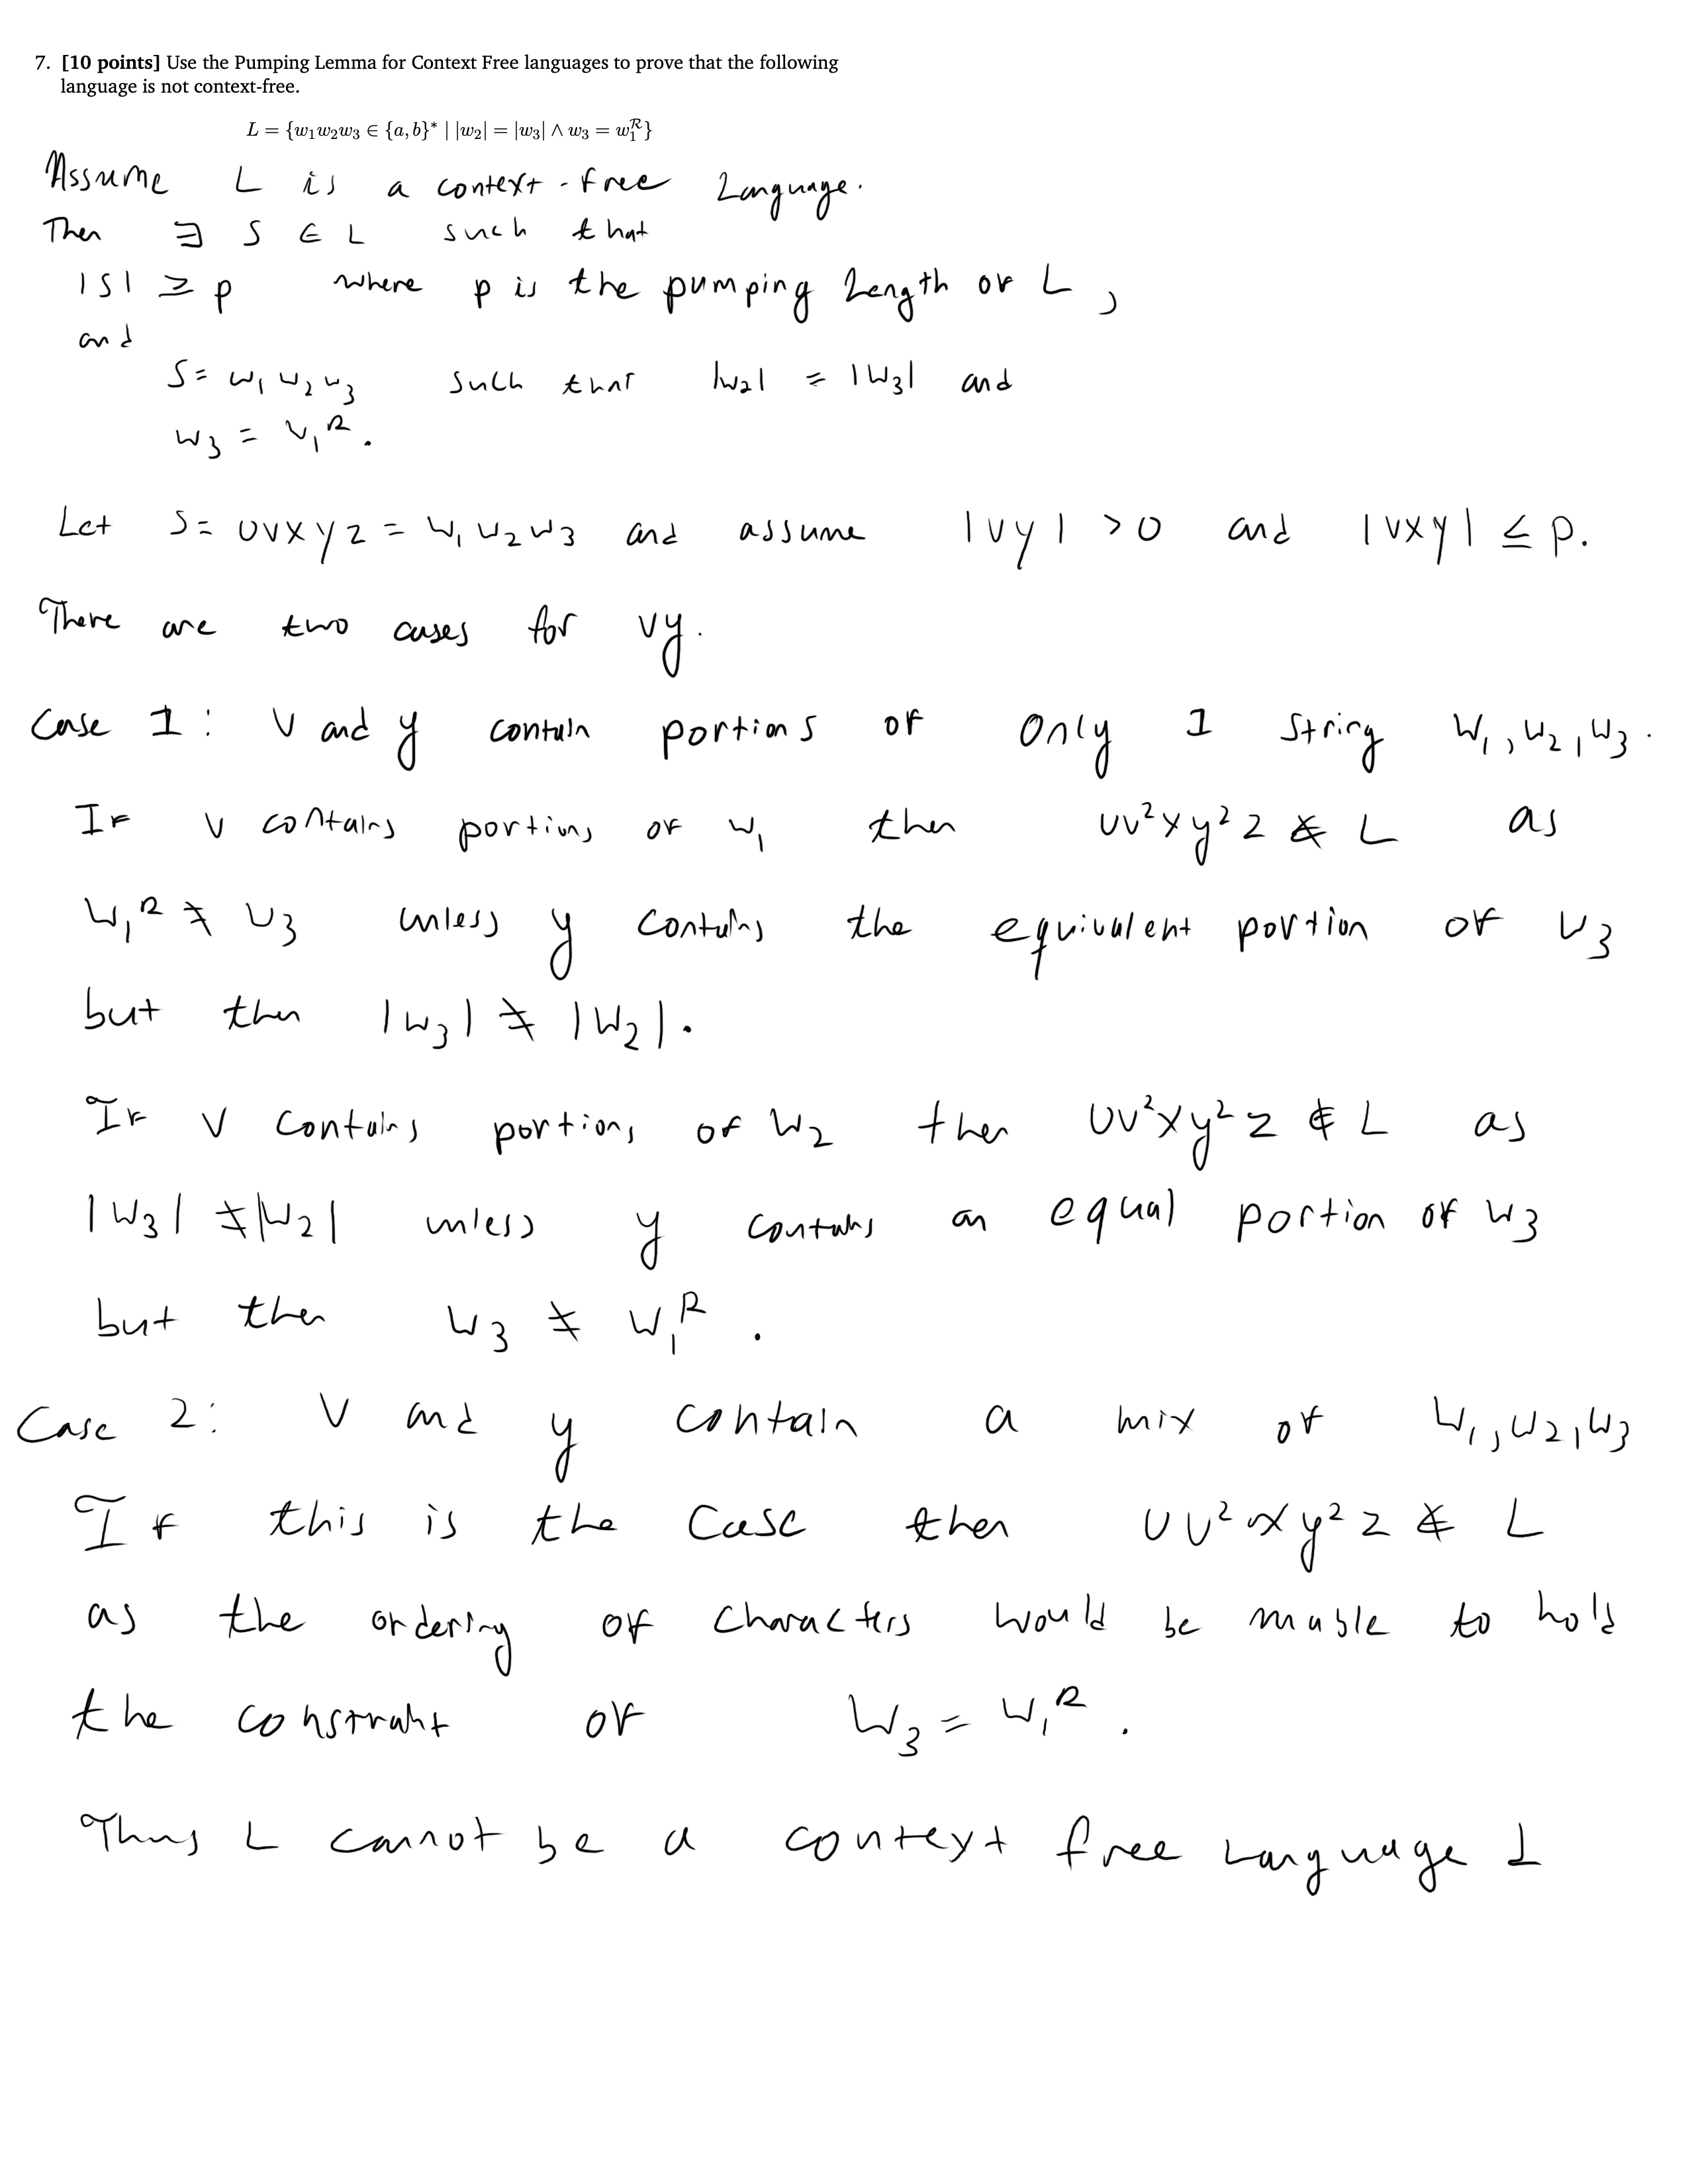 7. [10 points] Use the Pumping Lemma for Context Free languages to prove that the following
language is not context-free.
L = {w₁w₂w₃ ∈ {a, b}* | |w₂| = |w₃| ∧ w₃ = w₁ᴿ}
Assume L is a context-free Language.
Then ∃ S ∈ L such that
|S| ≥ p where p is the pumping Length of L,
and
S = w₁w₂w₃ such that |w₂| = |w₃| and
w₃ = w₁ᴿ.
Let S = uvxyz = w₁w₂w₃ and assume |vy| > 0 and |vxy| ≤ p.
There are two cases for vy.
Case 1: v and y contain portions of only 1 string w₁, w₂, w₃.
If v contains portions of w₁ then uv²xy²z ∉ L as
w₁ᴿ ≠ w₃ unless y contains the equivalent portion of w₃
but then |w₃| ≠ |w₂|.
If v contains portions of w₂ then uv²xy²z ∉ L as
|w₃| ≠ |w₂| unless y contains an equal portion of w₃
but then w₃ ≠ w₁ᴿ.
Case 2: v and y contain a mix of w₁, w₂, w₃
If this is the case then uv²xy²z ∉ L
as the ordering of characters would be unable to hold
the constraint of w₃ = w₁ᴿ.
Thus L cannot be a context free Language ⊥